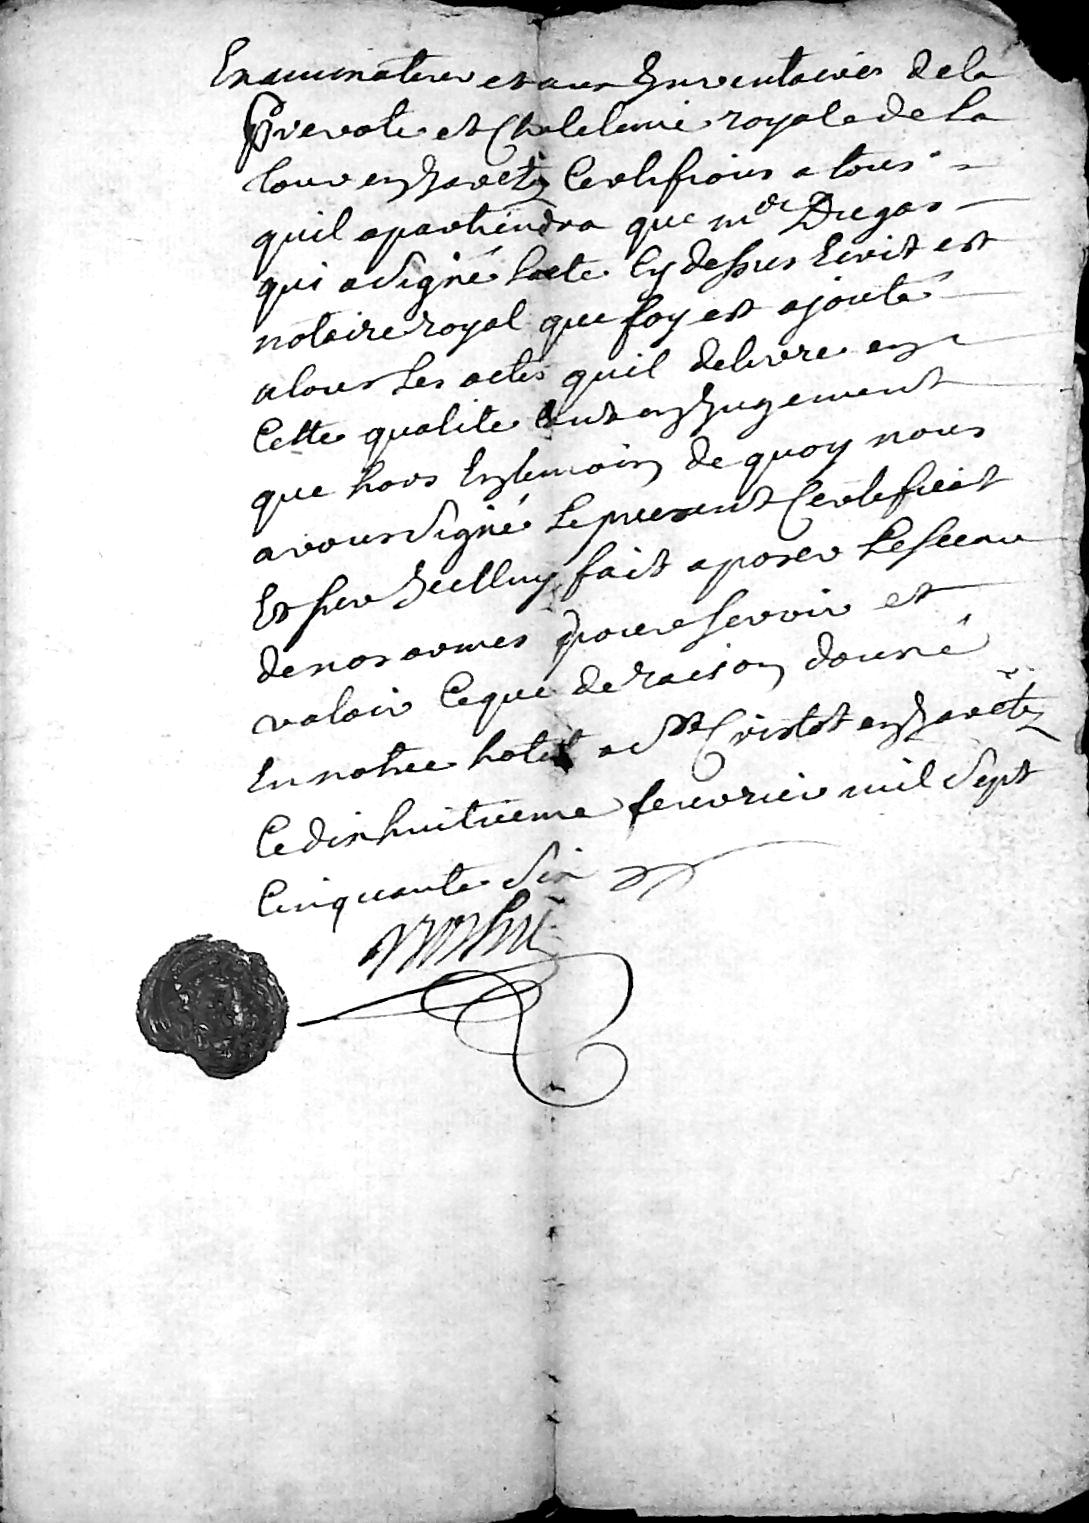 Examinateur et aux Inventaires de la
Prevote et Chatelenie royale de La
tour en Jaretz Certifions a tous
quil apartiendra que me Dugas
qui a Signé lacte Cy dessus Ecrit est
notaire royal que foy est ajouté
a tous Les actes quil delivre en
Cette qualite tant en Jugement
que hors En temoin de quoy nous
avons Signé Le present Certificat
Et sur Icelluy fait aposer Le sceau
de nos armes pour servoir et
valoir Ce que de raison donné
En notre hotel a St Cristot en Jaretz
Ce dix huitieme feuvrier mil Sept
Cinquante Six